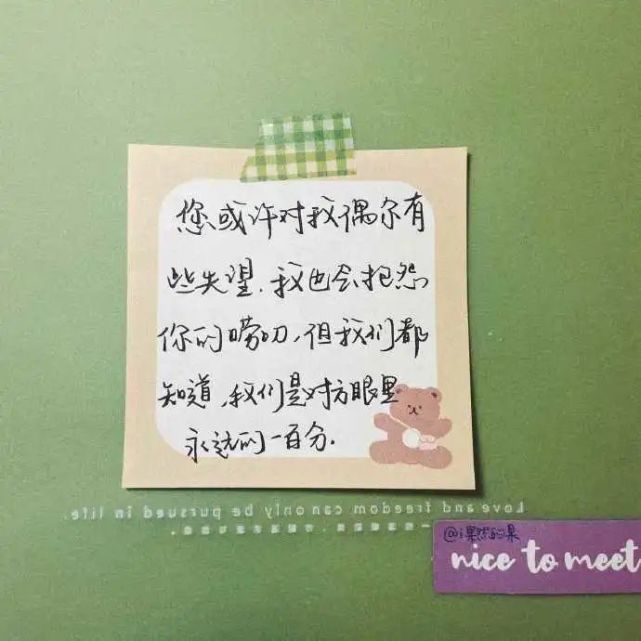 您或许对我偶尔有
些失望,我也会抱怨
你的唠叨,但我们都
知道,我们是对方眼里
永远的一百分.
Love and freedom can only be pursued in life.
@i果然的果
nice to meet